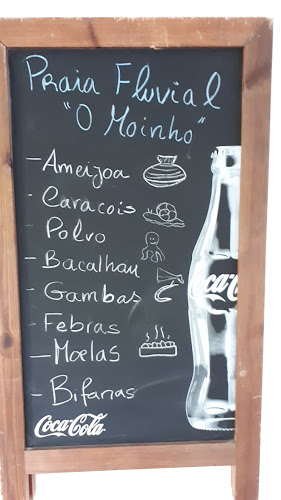 Praia Fluvial
"O Moinho"
- Ameijoa
- Caracois
Polvo
- Bacalhau
- Gambas
- Febras
- Moelas
- Bifanas
Coca-Cola
Coca-C